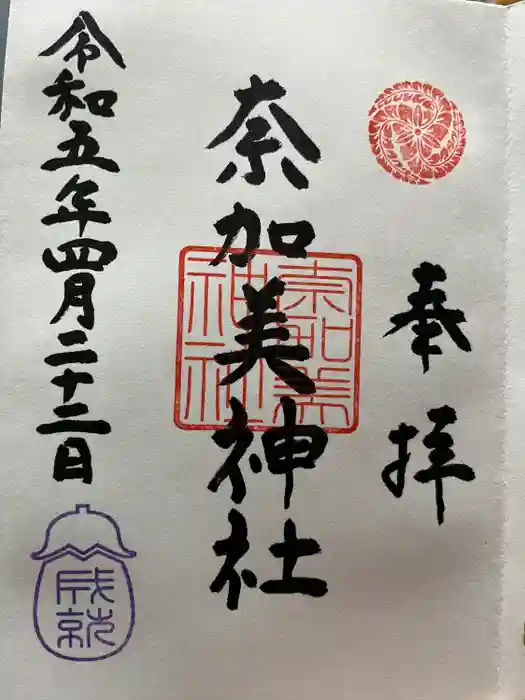 奉拝
奈加美神社
奈加美
神社
令和五年四月二十二日
成就